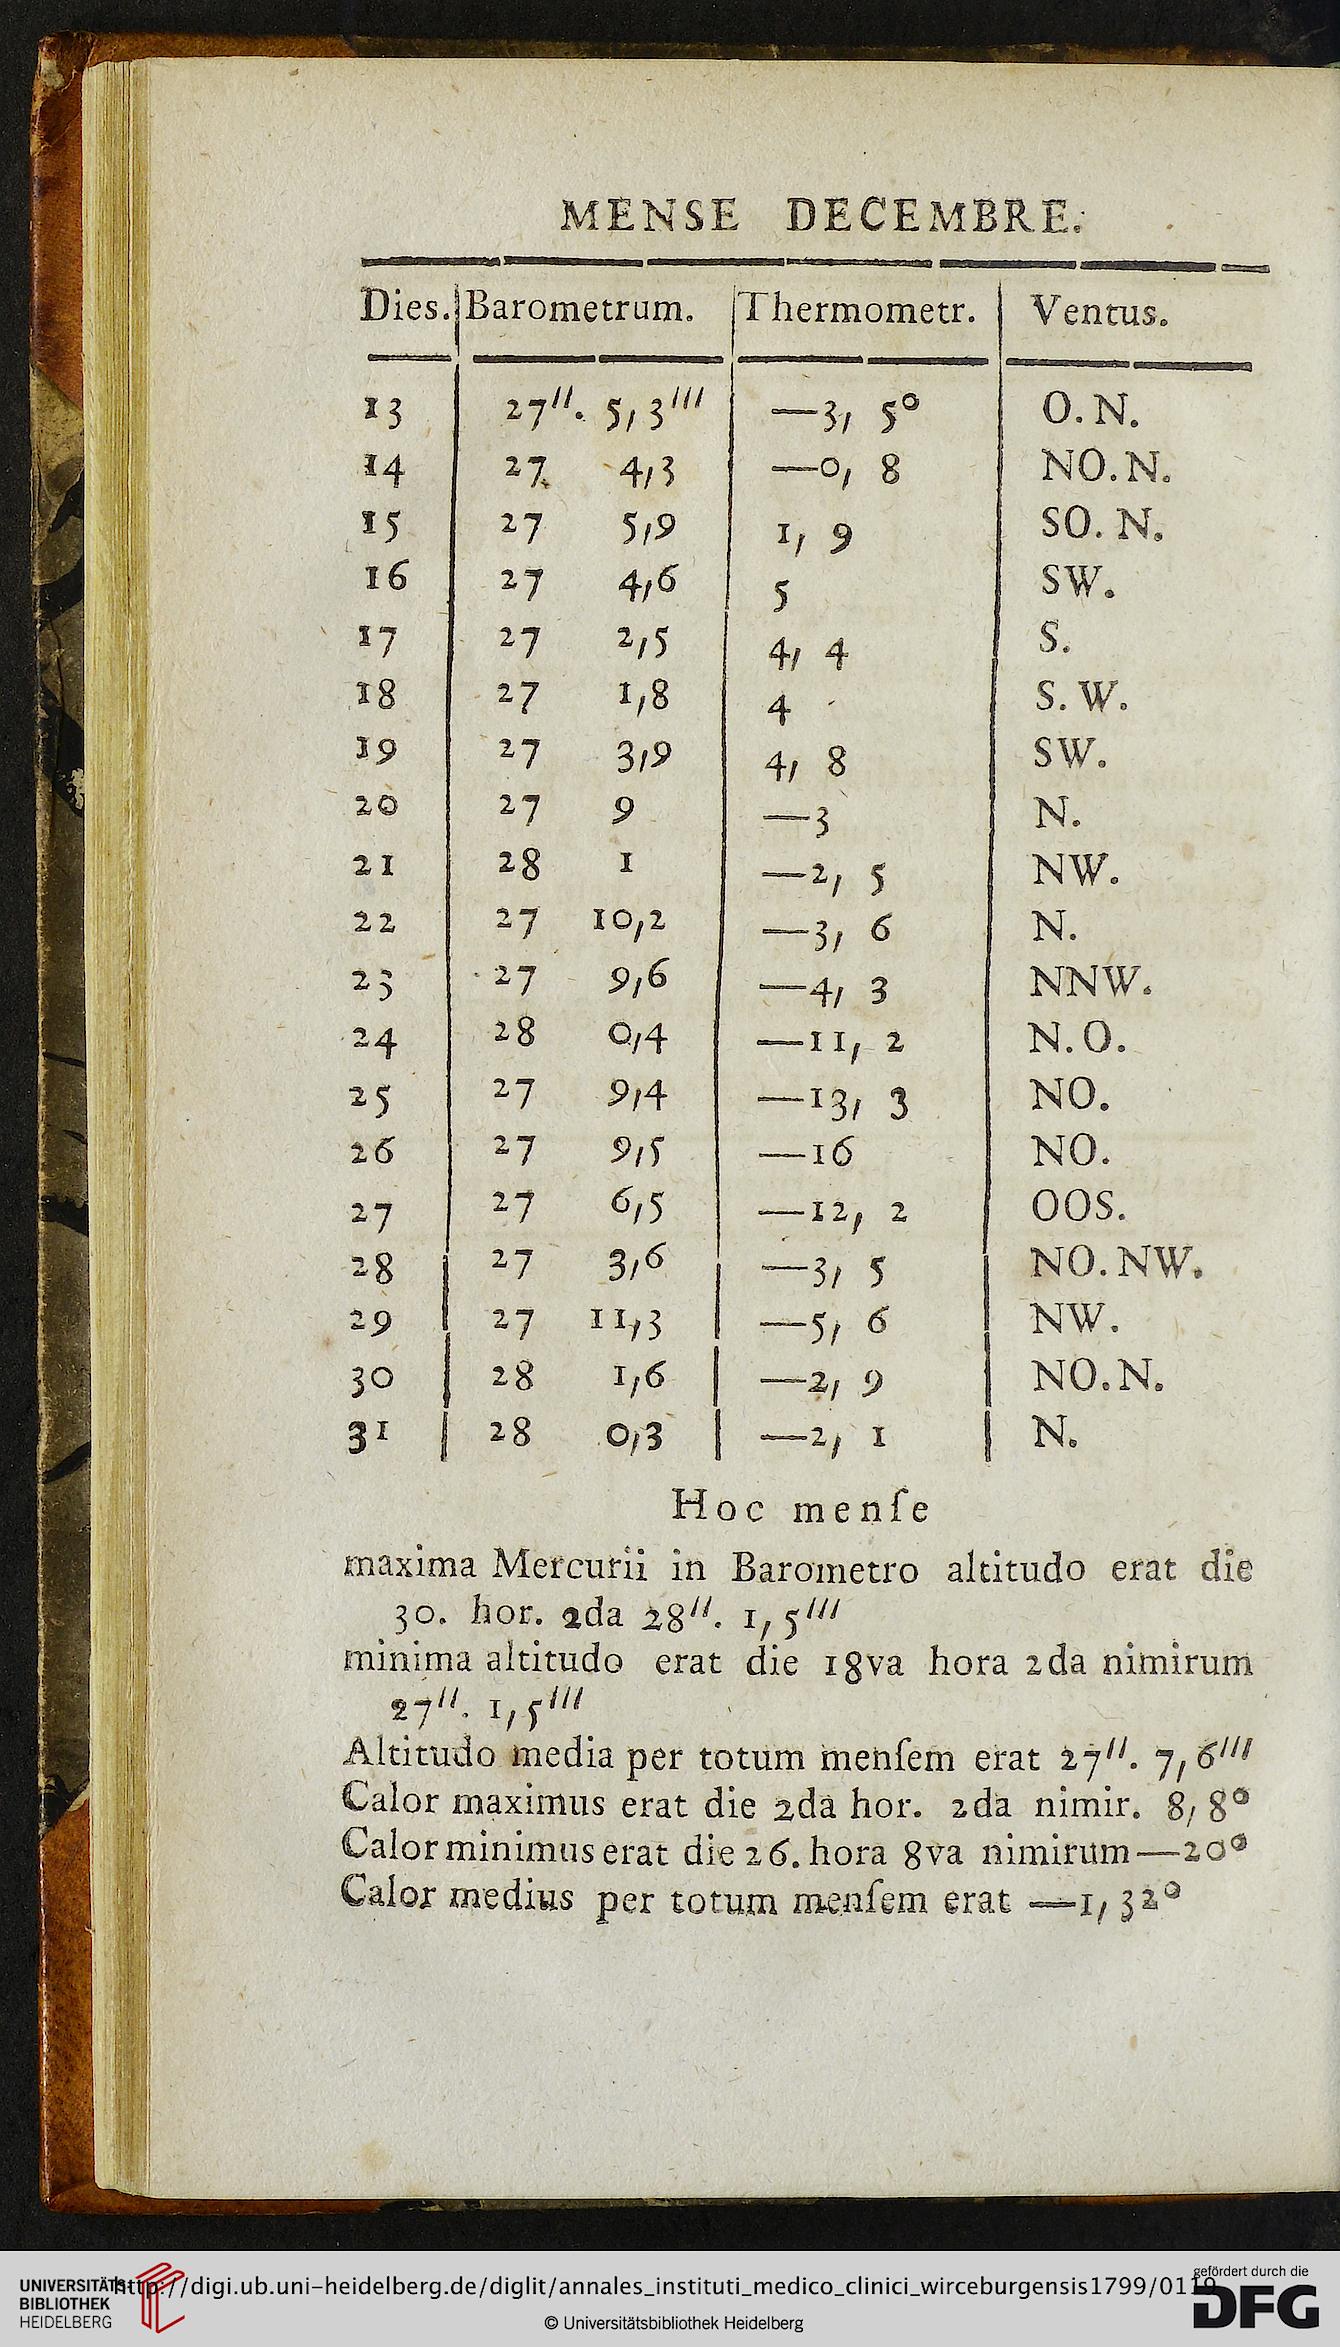 MENSE DECEMBRE.
Dies. Barometrum. Thermometr. Ventus.
13 27′′. 5,3′′′ —3, 5° O. N.
14 27. 4,3 —0, 8 NO. N.
15 27 5,9 1, 9 SO. N.
16 27 4,6 5 SW.
17 27 2,5 4, 4 S.
18 27 1,8 4 S. W.
19 27 3,9 4, 8 SW.
20 27 9 —3 N.
21 28 1 —2, 5 NW.
22 27 10,2 —3, 6 N.
23 27 9,6 —4, 3 NNW.
24 28 0,4 —11, 2 N. O.
25 27 9,4 —13, 3 NO.
26 27 9,5 —16 NO.
27 27 6,5 —12, 2 OOS.
28 27 3,6 —3, 5 NO. NW.
29 27 11,3 —5, 6 NW.
30 28 1,6 —2, 9 NO. N.
31 28 0,3 —2, 1 N.
Hoc menſe
maxima Mercurii in Barometro altitudo erat die
30. hor. 2da 28′′. 1, 5′′′
minima altitudo erat die 18va hora 2da nimirum
27′′. 1, 5′′′
Altitudo media per totum menſem erat 27′′. 7, 6′′′
Calor maximus erat die 2da hor. 2da nimir. 8, 8°
Calor minimus erat die 26. hora 8va nimirum —20°
Calor medius per totum menſem erat —1, 32°
UNIVERSITÄTS-
BIBLIOTHEK
HEIDELBERG
http://digi.ub.uni-heidelberg.de/diglit/annales_instituti_medico_clinici_wirceburgensis1799/0119
© Universitätsbibliothek Heidelberg
gefördert durch die
DFG